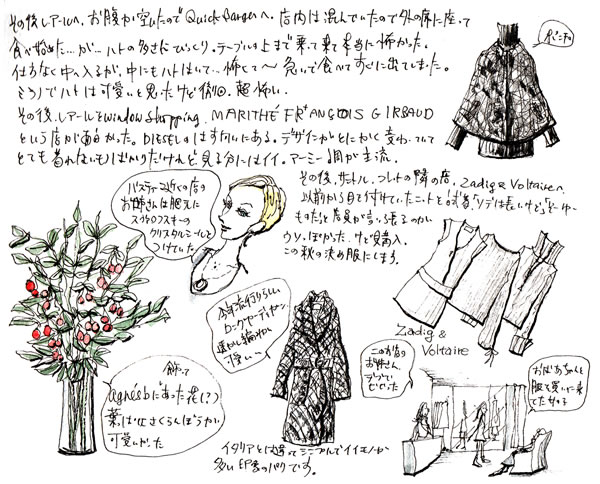 その後レアールへ。お腹が空いたのでQuick Burgerへ。店内は混んでいたので外の席に座って
食べ始めた…が…ハトの多さにびっくり。テーブルの上まで乗って来て本当に怖かった。
仕方なく中へ入るが、中にもハトはいて…怖くて〜急いで食べてすぐに出てしまった。
ミラノでハトは可愛いと見たけど
超怖い。
その後、レアールをwindow shopping. MARITHÉ FRANÇOIS GIRBAUD
という店が面白かった。DIESELのはす向いにある。デザインがとにかく変わっていて
とても着れないものばかりだけれど、見る分にはイイ。アーミー調が主流。
その後、サントノレ、コレットの隣の店、Zadig & Voltaireへ。
以前から目を付けていたニットを試着。ソデは長いけどそーゆー
ものだと店員が言い張るのが
ウソっぽかった。けど購入。
この秋の決め服にしよう。
バスティーユ近くの店の
お姉さんは胸元に
スワロフスキーの
クリスタルシールを
つけていた
今年流行りらしい
ロングカーディガン
可愛い〜
Zadig &
Voltaire
このお店の
お姉さん、
おばあちゃんと
服を買いに来
てた女の子
飾って
agnès b にあった花(?)
葉っぱはさくらんぼみたい
可愛いかった
イタリアとは違ってシンプルでイイモノが
多い印象のパリです。